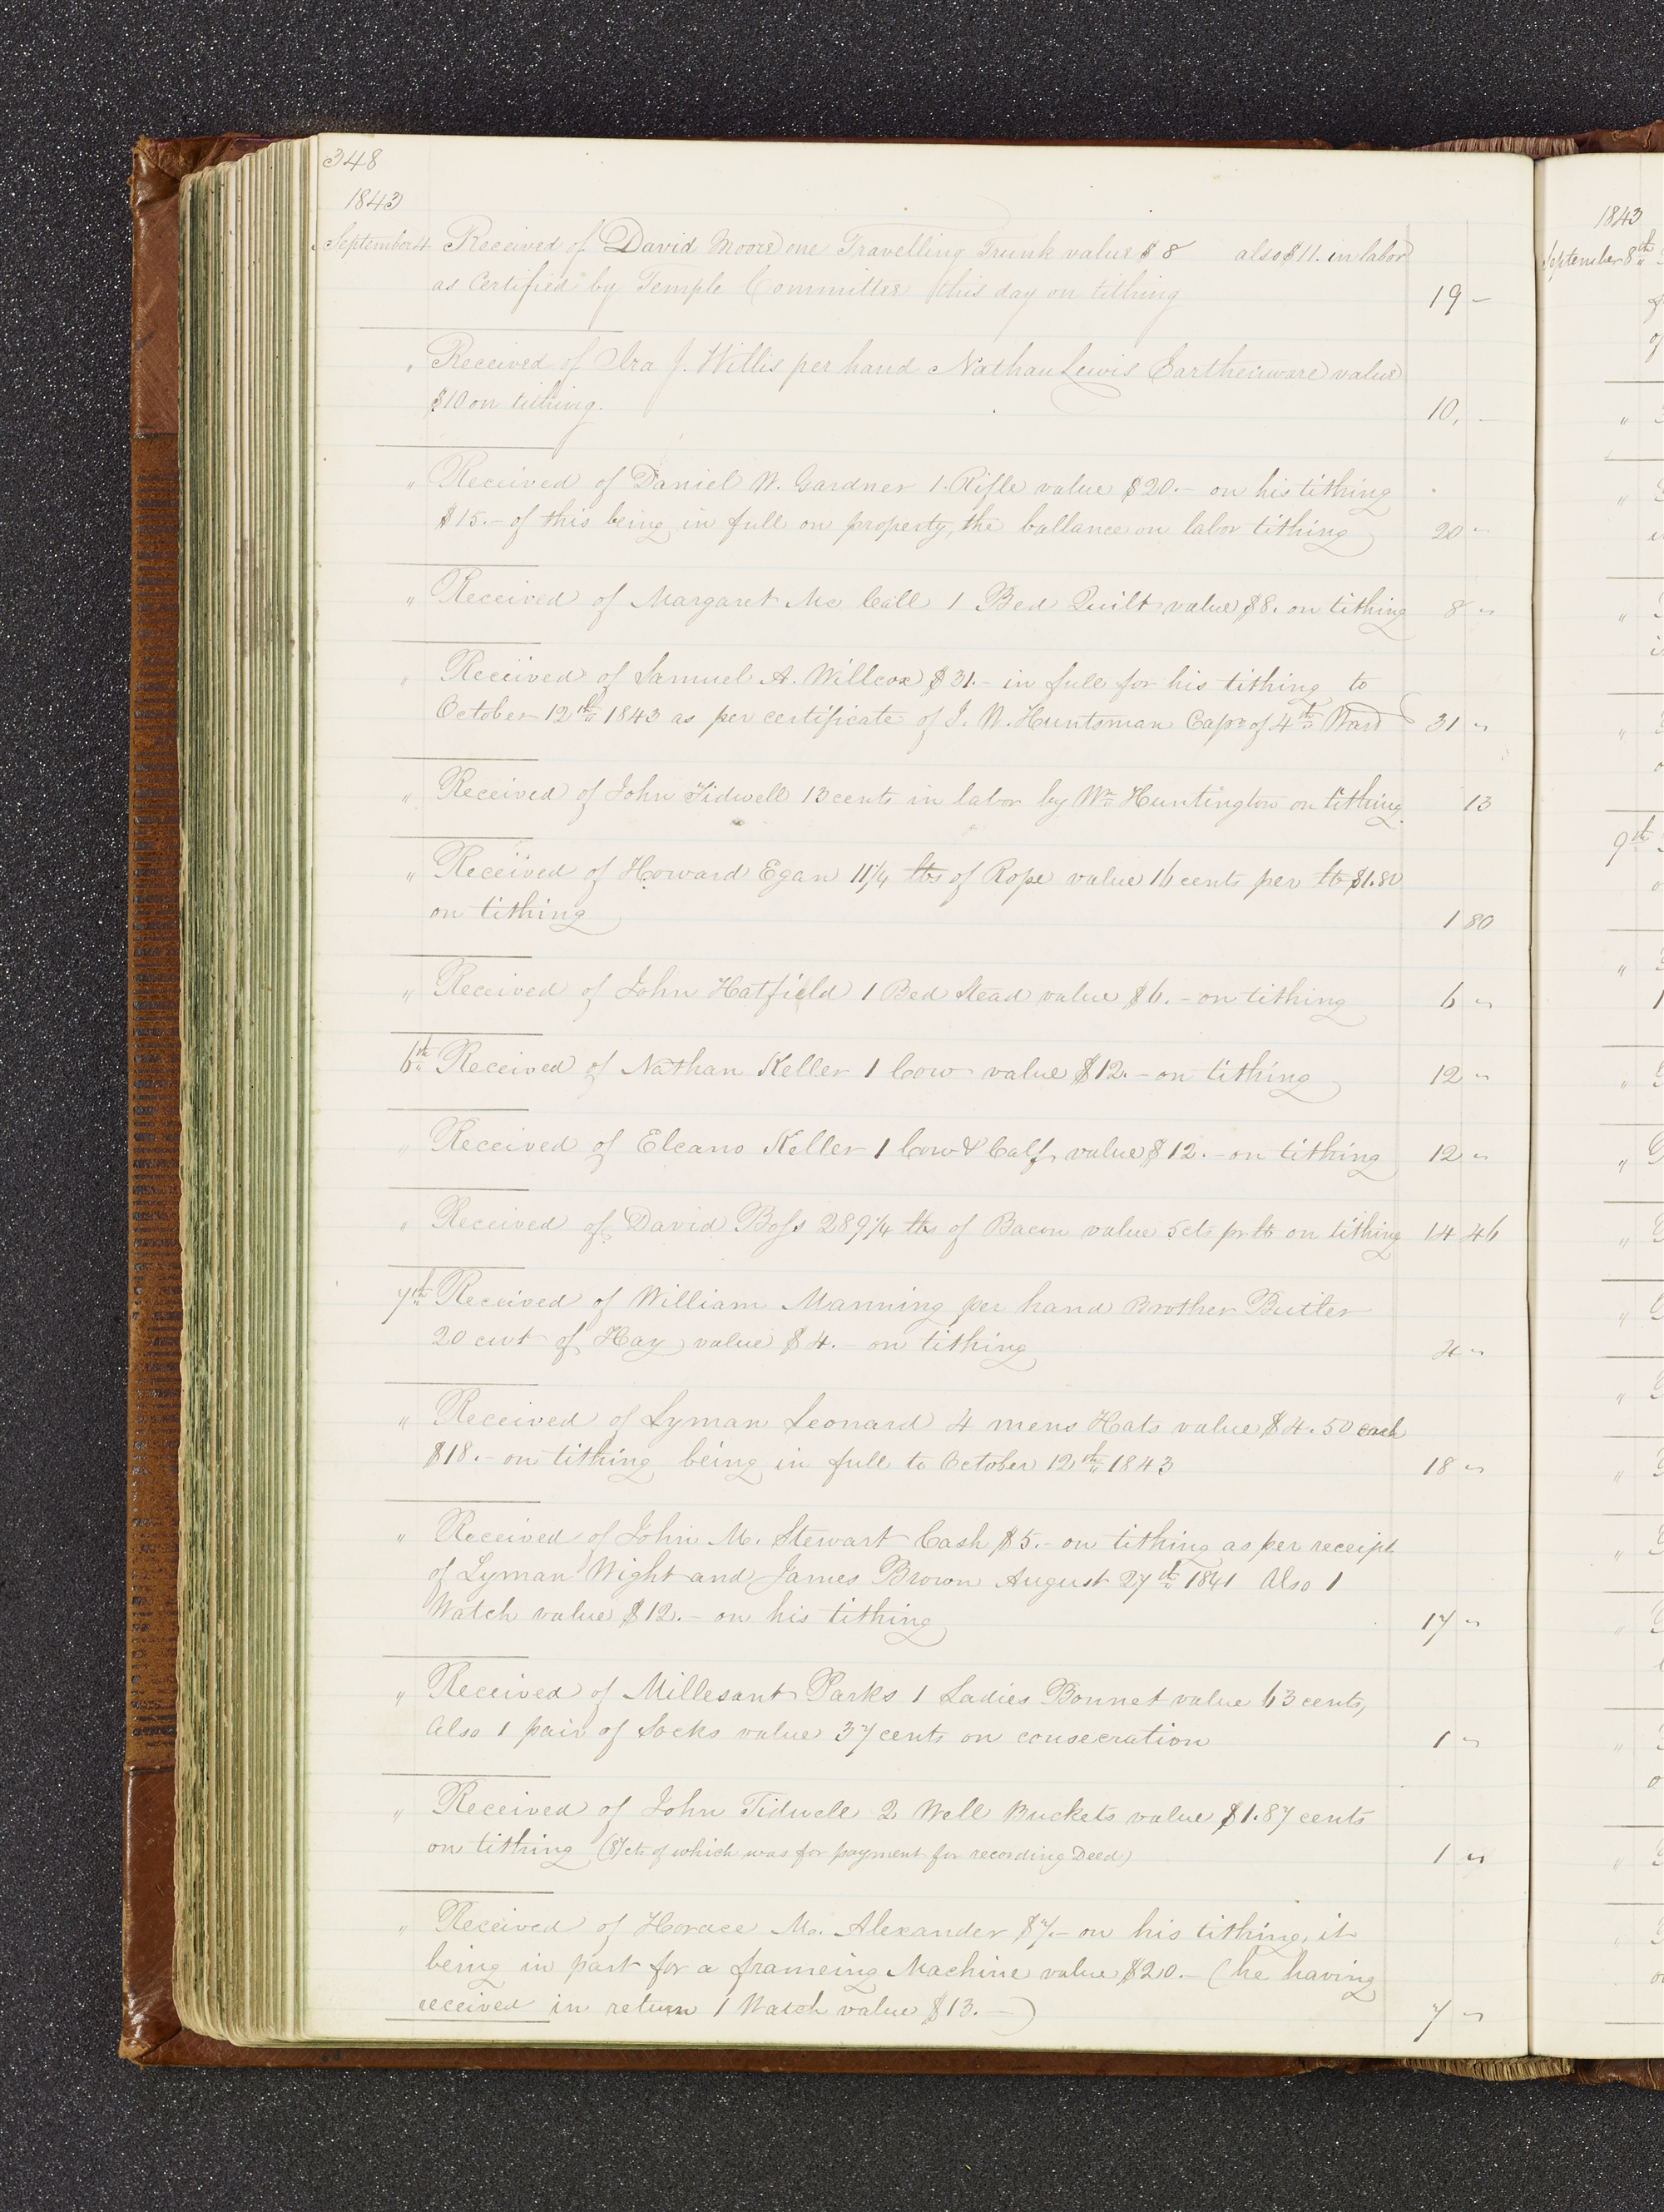 348
1843
September 4 Received of David Moore one Travelling Trunk value $8 also $11. in labor
as Certified by Temple Committee this day on tithing 19 -
" Received of Ira J. Willis per hand Nathan Lewis Earthenware value
$10 on tithing. 10, -
" Received of Daniel W. Gardner 1. Rifle value $20.- on his tithing
$15.- of this being in full on property, the ballance on labor tithing 20 "
" Received of Margaret Mc Call 1 Bed Quilt value $8. on tithing 8 "
" Received of Samuel A. Willcox $31.- in full for his tithing to
October 12th 1843 as per certificate of J. W. Huntsman Capn of 4th Ward 31 "
" Received of John Tidwell 13 cents in labor by Wm Huntington on tithing. 13
" Received of Howard Egan 11 1/4 lbs of Rope value 16 cents per lb $1.80
on tithing 1 80
" Received of John Hatfield 1 Bed Stead value $6.- on tithing 6 "
6th Received of Nathan Keller 1 Cow value $12.- on tithing 12 "
" Received of Eleano Keller 1 Cow & Calf value $12.- on tithing 12 "
" Received of David Boss 289 1/4 lbs of Bacon value 5 cts pr lb on tithing 14 46
7th Received of William Manning per hand Brother Butler
20 cwt of Hay value $4.- on tithing 4 "
" Received of Lyman Leonard 4 mens Hats value $4.50 each
$18.- on tithing being in full to October 12th 1843 18 "
" Received of John M. Stewart Cash $5.- on tithing as per receipt
of Lyman Wight and James Brown August 27th 1841 Also 1
Watch value $12.- on his tithing 17 "
" Received of Millesant Parks 1 Ladies Bonnet value 63 cents,
Also 1 pair of Socks value 37 cents on consecration 1 "
" Received of John Tidwell 2 Well Buckets value $1.87 cents
on tithing (87 cts of which was for payment for recording Deed) 1 "
" Received of Horace M. Alexander $7.- on his tithing, it
being in part for a frameing Machine value $20.- (he having
received in return 1 Watch value $13.-) 7 "
1843
September 8th
9th